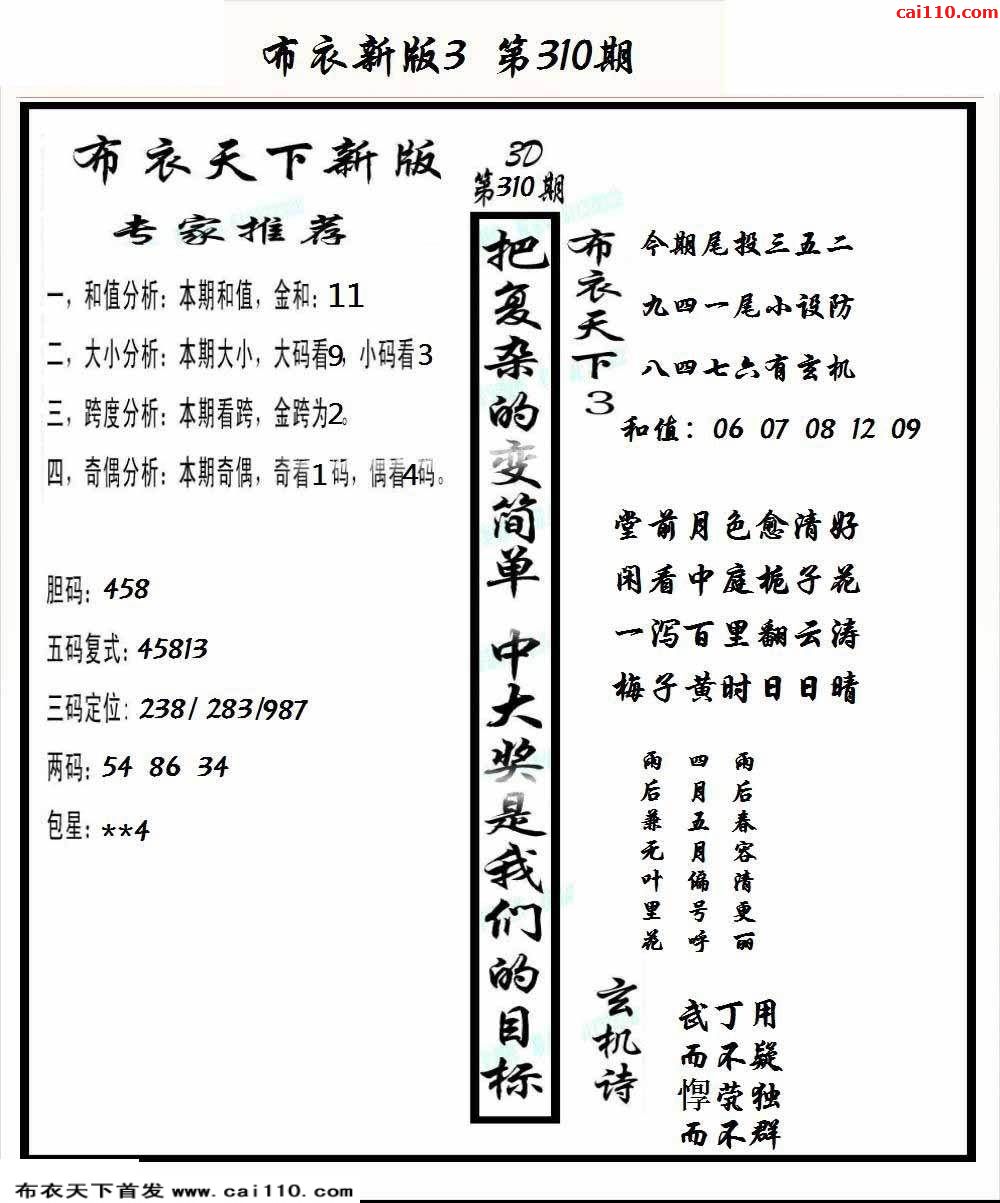 cai110.com
布衣新版3 第310期
布衣天下新版
专家推荐
一，和值分析：本期和值，金和：11
二，大小分析：本期大小，大码看9，小码看3
三，跨度分析：本期看跨，金跨为2。
四，奇偶分析：本期奇偶，奇看1码，偶看4码。
胆码：458
五码复式：45813
三码定位：238/ 283/987
两码：54 86 34
包星：**4
3D
第310期
把复杂的变简单 中大奖是我们的目标
布衣天下3
今期尾投三五二
九四一尾小设防
八四七六有玄机
和值：06 07 08 12 09
堂前月色愈清好
闲看中庭栀子花
一泻百里翻云涛
梅子黄时日日晴
雨后春容清更丽
四月五月偏号呼
雨后兼无叶里花
玄机诗
武丁用
而不疑
惸茕独
而不群
布衣天下首发 www.cai110.com